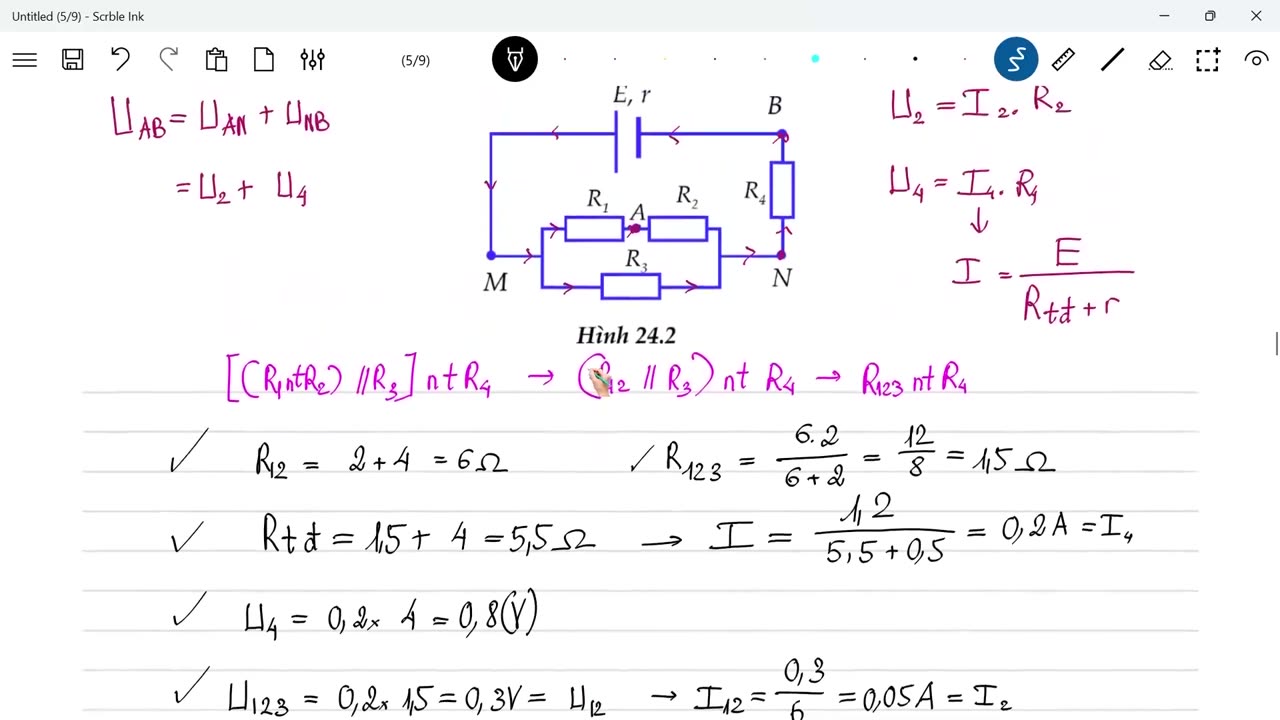 Untitled (5/9) - Scrble Ink
(5/9)
U_AB = U_AN + U_NB
= U_2 + U_4
E, r
B
R_1
A
R_2
R_4
R_3
M
N
Hình 24.2
U_2 = I_2. R_2
U_4 = I_4. R_4
↓
I = E / (R_tđ + r)
[(R_1 nt R_2) // R_3] nt R_4 → (R_12 // R_3) nt R_4 → R_123 nt R_4
✓ R_12 = 2 + 4 = 6Ω ✓ R_123 = 6.2 / (6 + 2) = 12/8 = 1,5 Ω
✓ R_tđ = 1,5 + 4 = 5,5 Ω → I = 1,2 / (5,5 + 0,5) = 0,2A = I_4
✓ U_4 = 0,2 × 4 = 0,8(V)
✓ U_123 = 0,2 × 1,5 = 0,3V = U_12 → I_12 = 0,3/6 = 0,05A = I_2